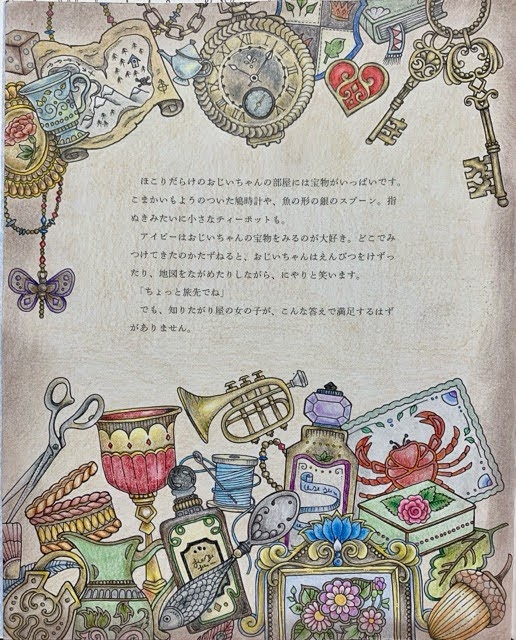 ほこりだらけのおじいちゃんの部屋には宝物がいっぱいです。
こまかいもようのついた鳩時計や、魚の形の銀のスプーン。指
ぬきみたいに小さなティーポットも。
アイビーはおじいちゃんの宝物をみるのが大好き。どこでみ
つけてきたのかたずねると、おじいちゃんはえんぴつをけずっ
たり、地図をながめたりしながら、にやりと笑います。
「ちょっと旅先でね」
でも、知りたがり屋の女の子が、こんな答えで満足するはず
がありません。